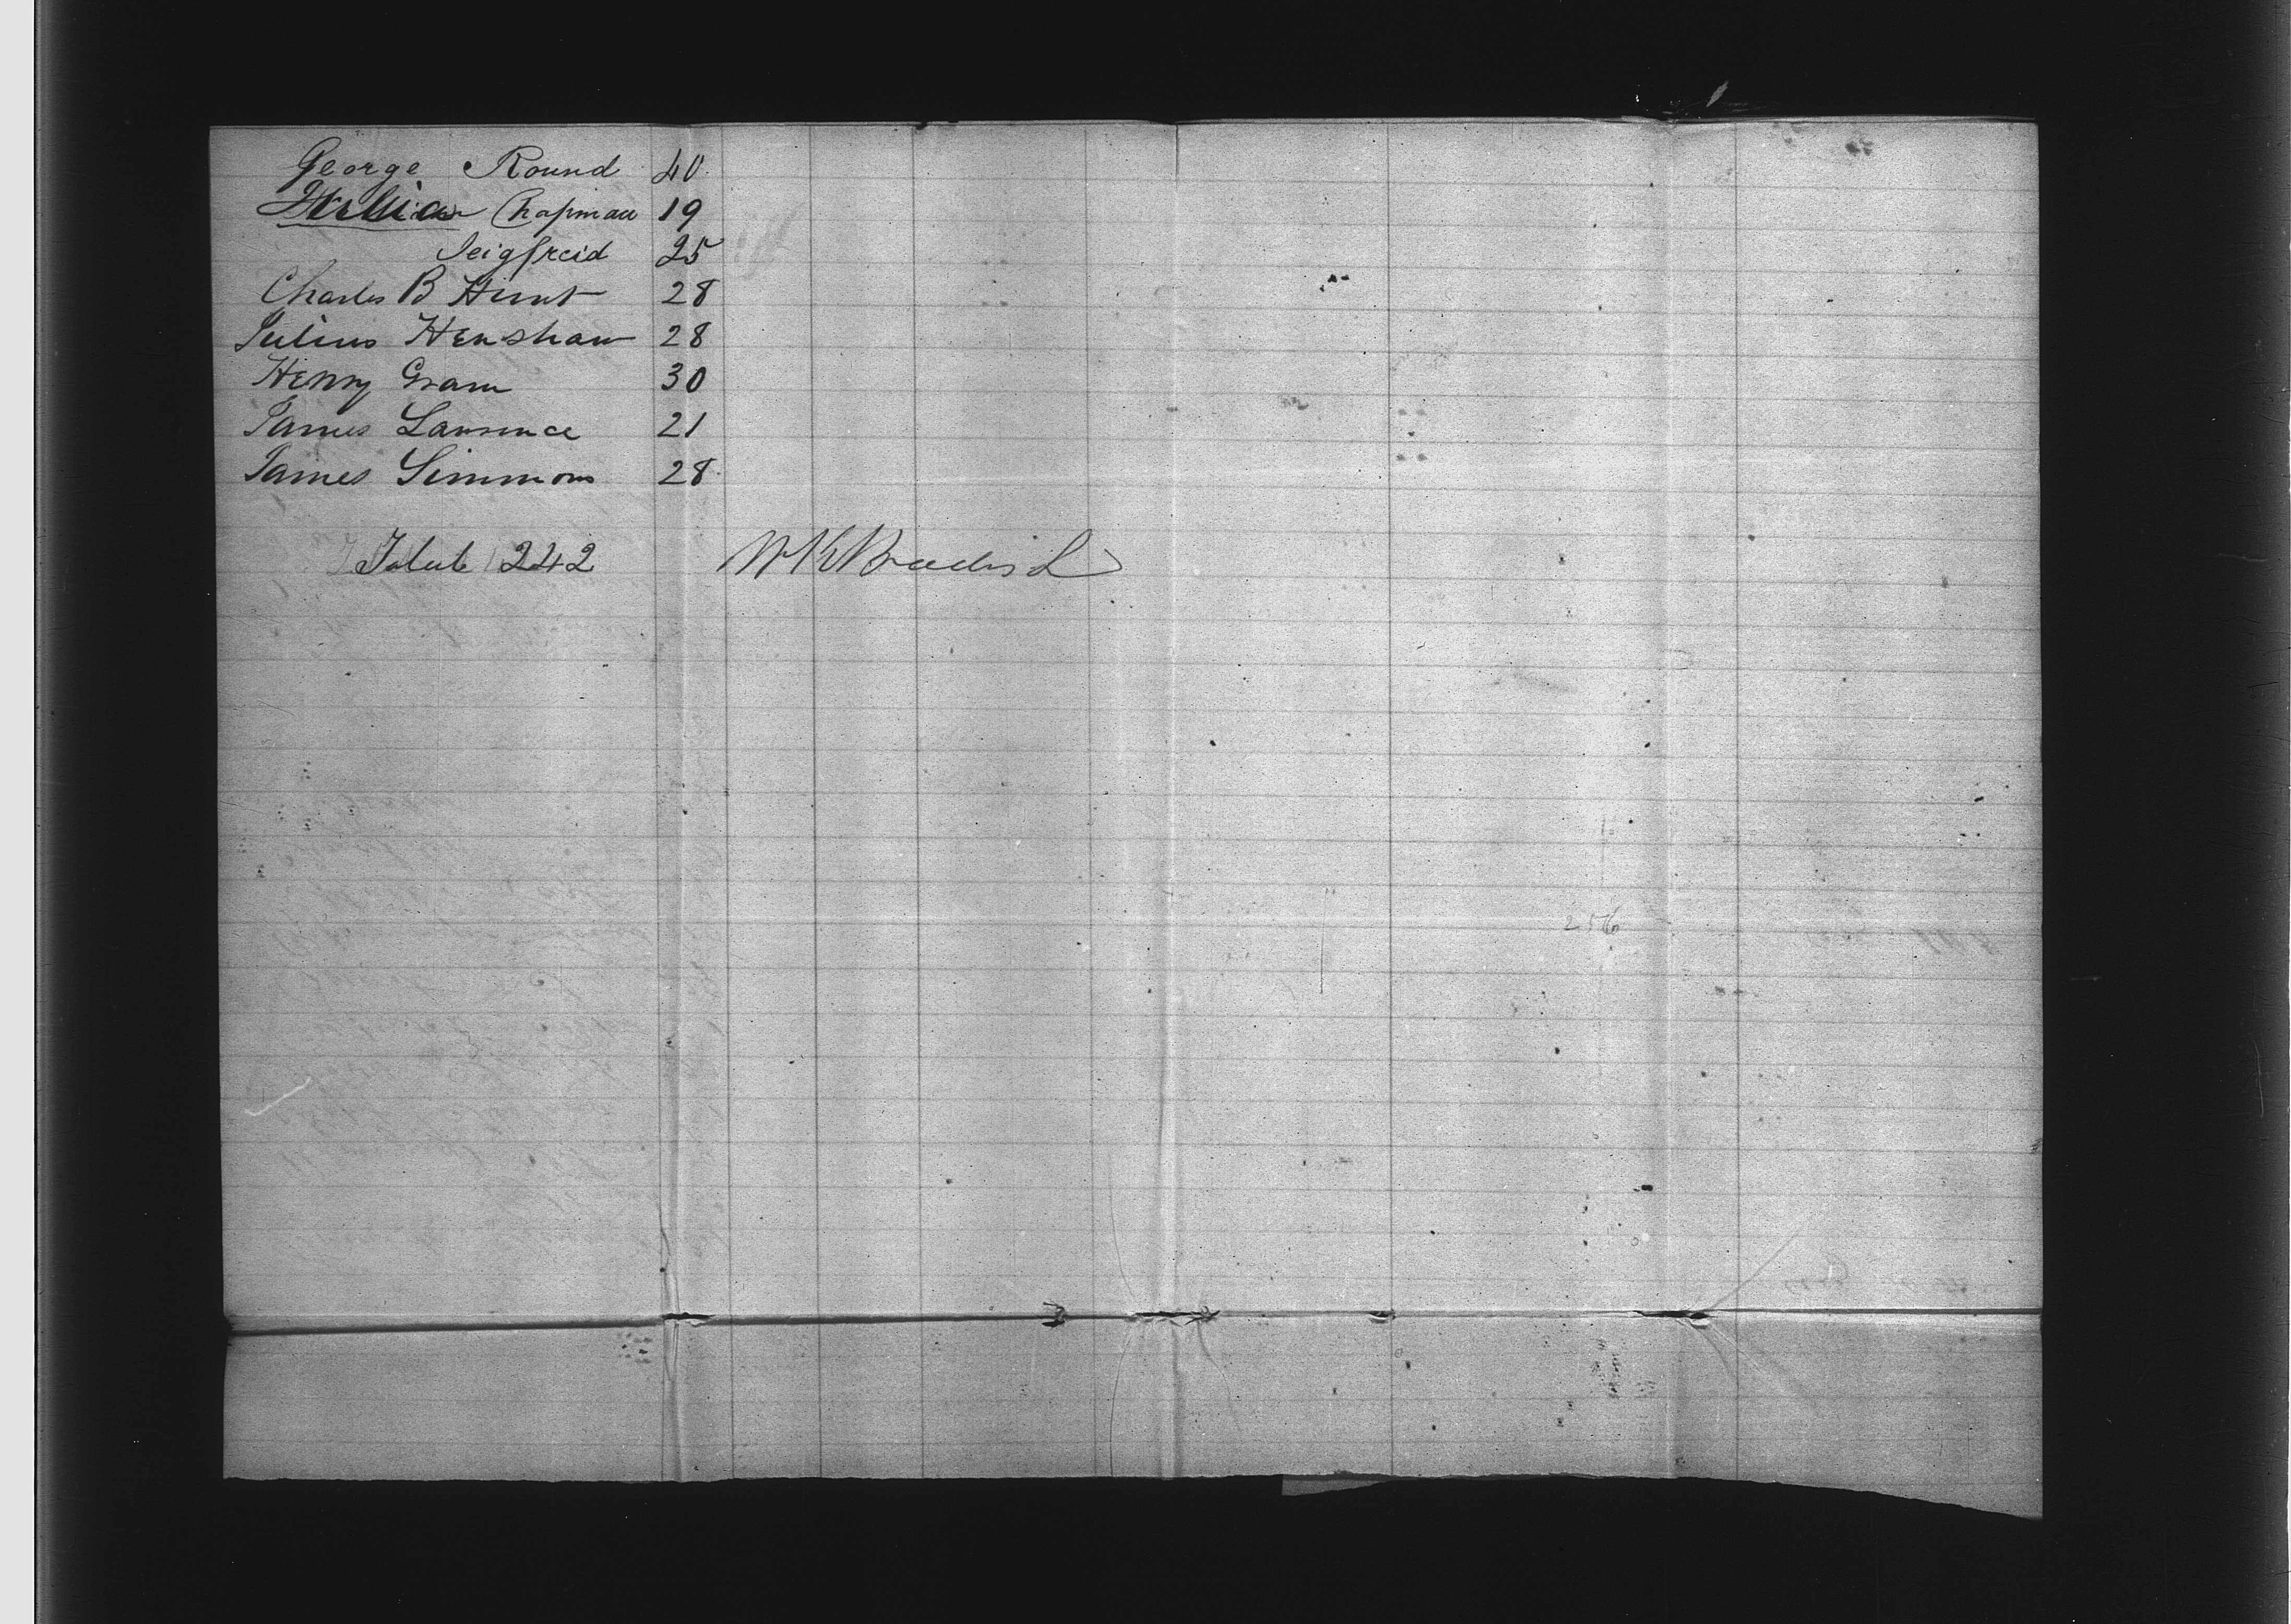 George Round 40
William Chapman 19
Seigfreid 25
Charles B Hunt 28
Julius Henshaw 28
Henry Gram 30
James Lawrence 21
James Simmons 28
Total 242
256